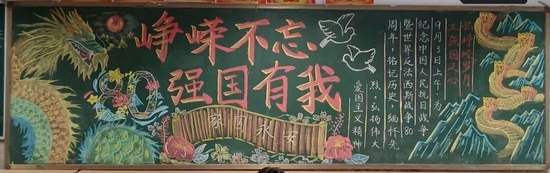 峥嵘不忘
强国有我
80
家国永安
9月3日上午,为
纪念中国人民抗日战争
暨世界反法西斯战争80
周年,铭记历史,缅怀先
烈,弘扬伟大
爱国主义精神